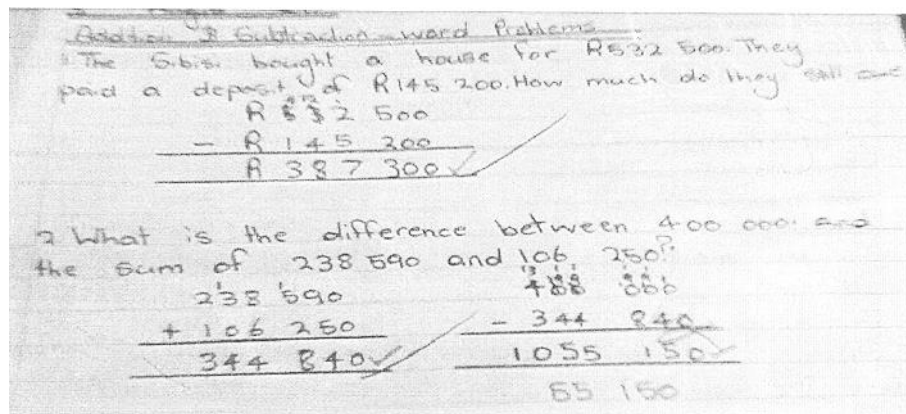 Addition & Subtraction word Problems
The Sibisi bought a house for R532 500. They
paid a deposit of R145 200. How much do they still owe
R 532 500
- R 145 200
R 387 300
2 What is the difference between 400 000 and
the sum of 238 590 and 106 250?
238 590
+ 106 250
344 840
400 000
- 344 840
1055 150
55 150